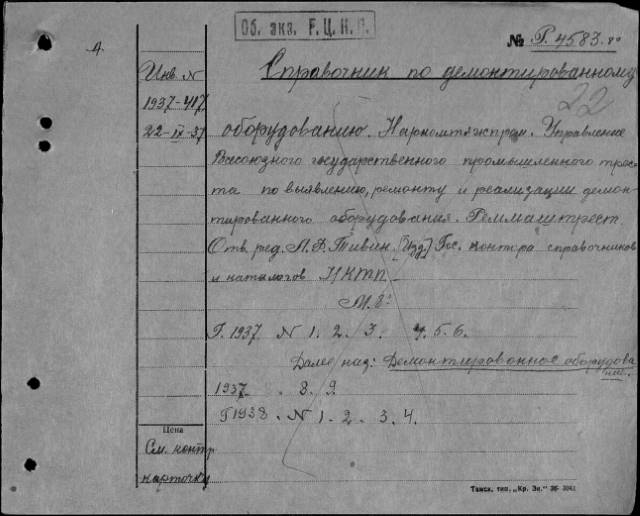 Об. экз. Г.Ц.К.П.
4.
№ Г. 4583.
Инв. N
1937-417
22-IX-37
Справочник по демонтированному
22
оборудованию. Наркомтяжпром. Управление
Всесоюзного государственного промышленного трес-
та по выявлению, ремонту и реализации демон-
тированного оборудования. Реммаштрест.
Отв. ред. Л. Ф. Тивин. [Изд.] Гос. контра справочников
и каталогов НКТП
М. 8°
Г. 1937 N 1. 2. 3. 4. 5. 6.
Далее наз: Демонтированное оборудова
ние.
1937 . 8. 9.
Г 1938 . N 1. 2. 3. 4.
Цена
См. контр
карточку
Тамск. тип. „Кр. Зн."